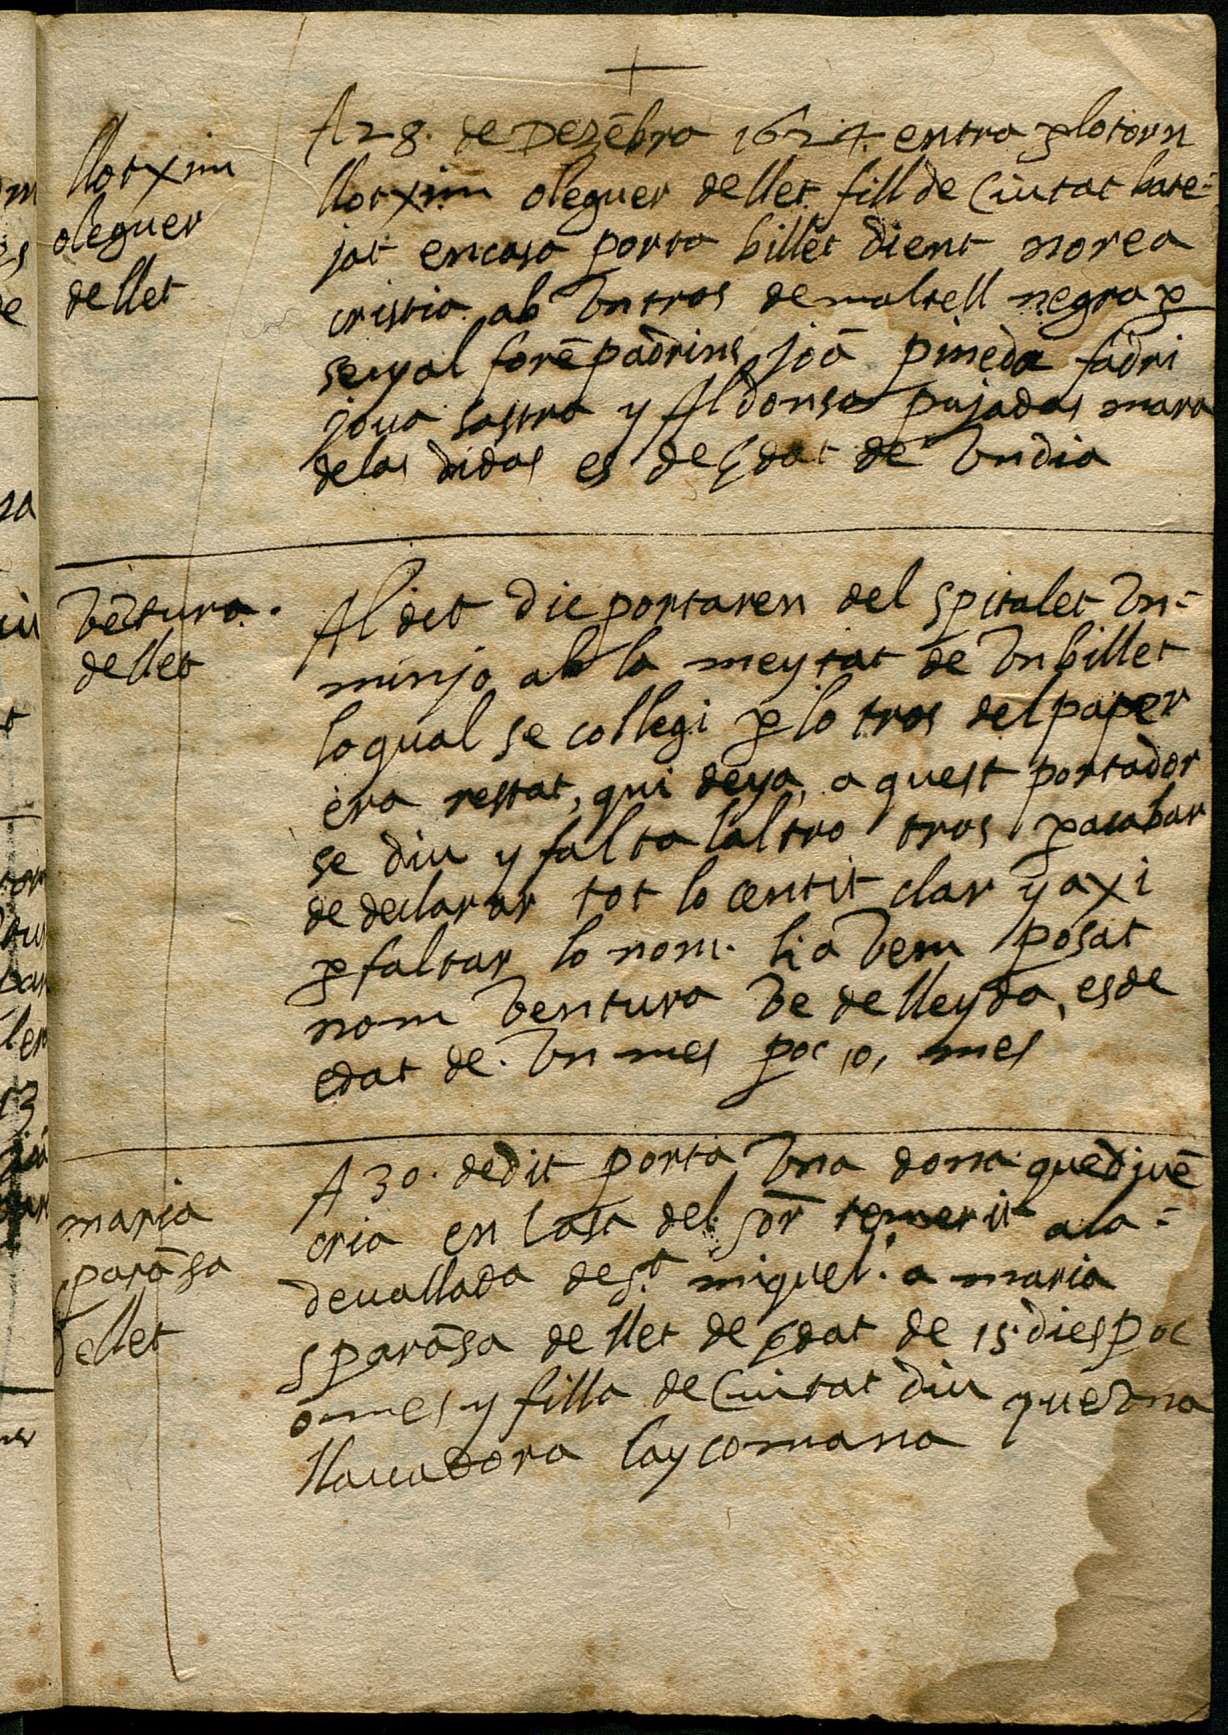 llotxim
oleguer
de llet
A 28. de Dezēbra 1624. entra p lo torn
llotxim oleguer de llet fill de Ciutat bate=
jat en casa porta billet dient no rea
cristia ab vn tros de maltell negra p
senyal forē padrins joā pineda fadri
joua sastra y Aldonsa pujadas mara
de las didas es de Edat de vn dia
vētura.
de llet
Al dit die portaren del spitalet vn=
minjo ab la meytat de vn billet
lo qual se collegi p lo tros del paper
era restat, qui deya, aquest portador
se diu y falta laltro tros p acabar
de declarar tot lo centit clar y axi
p faltar lo nom. li avem posat
nom ventura ve de lleyda, es de
edat de. vn mes poc o, mes
maria
sparāsa
de llet
A 30. de dit porta vna dona que d juē
cria en Casa del sor temerit a la=
deuallada de St. miquel. a maria
sparāsa de llet de edat de 15 dies poc
o mes y filla de Ciutat diu que vna
llauadora lay comana